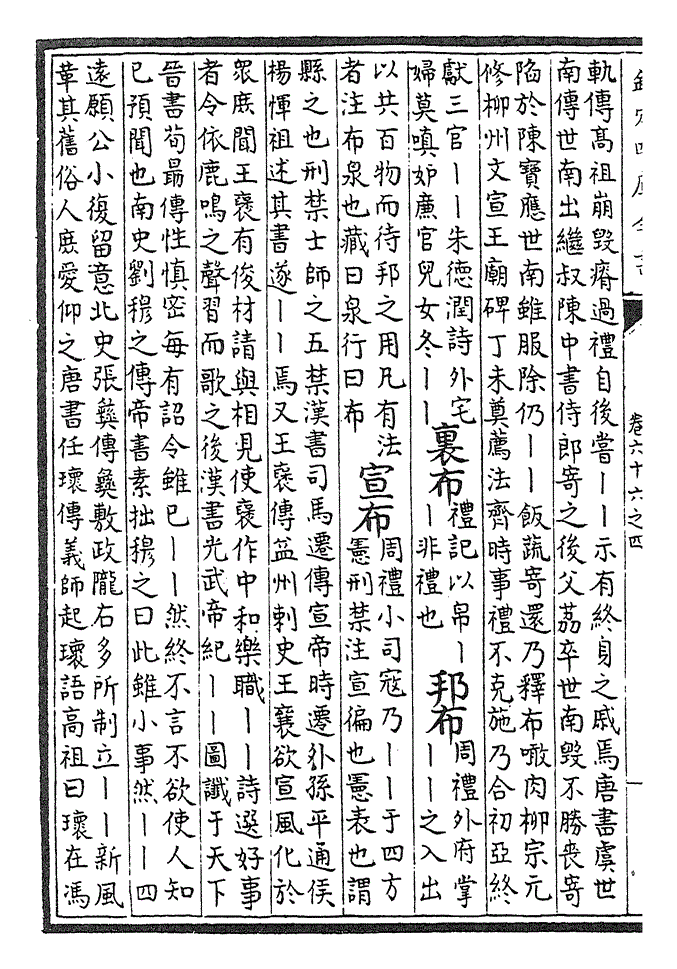 欽定四庫全書
卷六十六之四
軌傳高祖崩毀瘠過禮自後嘗丨丨示有終身之戚焉唐書虞世
南傳世南出繼叔陳中書侍郎寄之後父荔卒世南毀不勝喪寄
陷於陳寶應世南雖服除仍丨丨飯蔬寄還乃釋布噉肉柳宗元
修柳州文宣王廟碑丁未奠薦法齊時事禮不克施乃合初亞終
獻三官丨丨朱德潤詩外宅
婦莫嗔妒廉官兒女冬丨丨
裏布
禮記以帛丨
丨非禮也
邦布
周禮外府掌
丨丨之入出
以共百物而待邦之用凡有法
者注布泉也藏曰泉行曰布
宣布
周禮小司寇乃丨丨于四方
憲刑禁注宣徧也憲表也謂
縣之也刑禁士師之五禁漢書司馬遷傳宣帝時遷外孫平通侯
楊惲祖述其書遂丨丨焉又王褒傳益州刺史王襄欲宣風化於
衆庶聞王褒有俊材請與相見使褒作中和樂職丨丨詩選好事
者令依鹿鳴之聲習而歌之後漢書光武帝紀丨丨圖讖于天下
晉書荀勗傳性慎密每有詔令雖已丨丨然終不言不欲使人知
已預聞也南史劉穆之傳帝書素拙穆之曰此雖小事然丨丨四
遠願公小復留意北史張彝傳彝敷政隴右多所制立丨丨新風
革其舊俗人庶愛仰之唐書任瓌傳義師起瓌語高祖曰瓌在馮